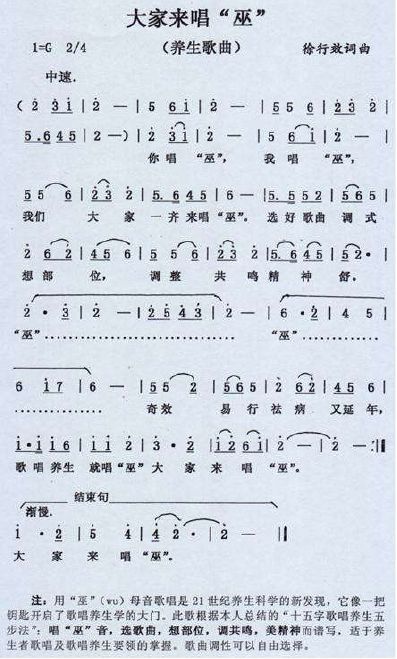 大家来唱“巫”
1=G 2/4 （养生歌曲） 徐行效词曲
中速.
( 2 3 1 | 2 — | 5 6 1 | 2 — | 5 5 6 | 2 2 3 2 |
5.6 4 5 | 2 —) | 2 3 1 | 2 — | 5 6 1 | 2 — |
你唱 “巫”， 我唱 “巫”，
5 5 6 | 2 3 2 | 5. 6 4 5 | 6 — | 5. 5 5 2 | 5 6 5 |
我们 大家 一齐来唱“巫”。 选好歌曲 调式
2 6 2 | 4 5 6 | 5 5 6 | 2 3 2 | 5. 6 4 5 | 5 2 · |
想部 位， 调整 共鸣精神舒。
2 · 3 | 2 — | 2 5 4 3 | 2 — | 6 · 2 | 4 5 |
“巫”…………………… “巫”……
6 1 7 | 6 — | 5 5 2 | 5 6 5 | 2 6 2 | 4 5 6 |
………… 奇效 易行祛病 又延年，
1·1 1 6 | 1 1 2 | 3 · 2 | 1 2 6 1 | 2 — | 2 — :||
歌唱养生 就唱“巫”大家来 唱 “巫”。
渐慢. 结束句
1 · 2 | 5 4 | 2 — | 2 — ||
大 家 来 唱 “巫”。
注：用“巫”（wu）母音歌唱是21世纪养生科学的新发现，它像一把
钥匙开启了歌唱养生学的大门。此歌根据本人总结的“十五字歌唱养生五
步法”：唱“巫”音，选歌曲，想部位，调共鸣，美精神而谱写，适于养
生者歌唱及歌唱养生要领的掌握。歌曲调性可以自由选择。